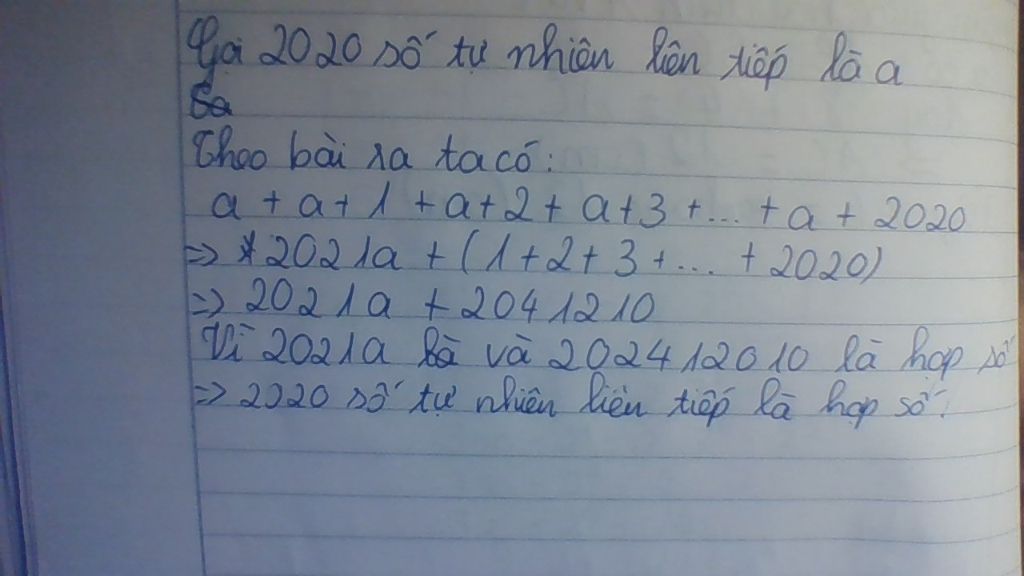 Gọi 2020 số tự nhiên liên tiếp là a
Theo bài ra ta có:
a + a + 1 + a + 2 + a + 3 + ... + a + 2020
=> 2021a + (1 + 2 + 3 + ... + 2020)
=> 2021a + 2041210
Vì 2021a và 202412010 là hợp số
=> 2020 số tự nhiên liên tiếp là hợp số.